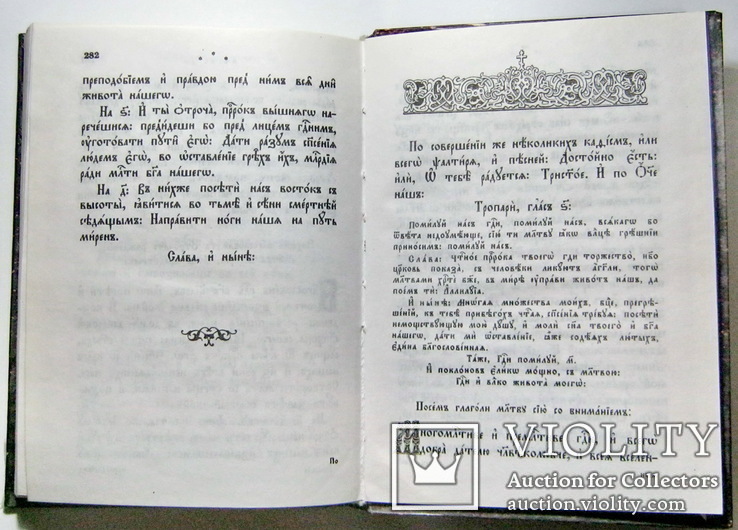 282
* * *
преподо́бїемъ и҆ пра́вдою пред̾ ни́мъ всѧ̀ дни̑
живота̀ на́шегѡ.
На ѕ҃: И҆ ты̀ ѻ҆троча̀, прⷪ҇ро́къ вы́шнѧгѡ на-
рече́шисѧ: пред̾и́деши бо пред̾ лице́мъ гдⷭ҇нимъ,
ᲂу҆гото́вати пᲂути̑ є҆гѡ̀: Да́ти ра́зᲂумъ сп҃се́нїѧ
лю́демъ є҆гѡ̀, во ѡ҆ставле́нїе грѣ̑хъ и҆́хъ, млⷭ҇рдїѧ
ра́ди мл҃ти бг҃а на́шегѡ.
На д҃: Въ ни́хже посѣтѝ на́съ восто́къ съ
высоты̀, ꙗ҆ви́тисѧ во тьмѣ̀ и҆ сѣ́ни сме́ртнѣй
сѣдѧ́щымъ: Напра́вити но́ги на́шѧ на пᲂу́ть
ми́ренъ.
Сла́ва, и҆ ны́нѣ:
По
По соверше́нїи же нѣ́коликихъ каѳі́смъ, и҆лѝ
всегѡ̀ ѱалти́рѧ, и҆ пѣ́сней: Досто́йно є҆́сть:
и҆лѝ, Ѡ҆ тебѣ̀ ра́дᲂуетсѧ: Трист҃о́е. И҆ по Ѻ҆́ч҃е
на́шъ:
Тропарѝ, гла́съ ѕ҃:
Поми́лᲂуй на́съ гдⷭ҇и, поми́лᲂуй на́съ, всѧ́кагѡ бо
ѿвѣ́та недоᲂумѣ́юще, сїю̀ тѝ мл҃твᲂу ꙗ҆́кѡ влⷣцѣ грѣ́шнїи
прино́симъ: поми́лᲂуй на́съ.
Сла́ва: Чⷭ҇тно́е прⷪ҇ро́ка твоегѡ̀ гдⷭ҇и торжество̀, нб҃о
цр҃ковь показа̀, съ человѣ́ки ликᲂу́ютъ а҆́гг҃ли, тогѡ̀
мл҃твами хрⷭ҇тѐ бж҃е, въ ми́рѣ ᲂу҆пра́ви живо́тъ на́шъ, да
пое́мъ тѝ: А҆ллилᲂу́їа.
И҆ ны́нѣ: Мнѡ́гаѧ мно́жества мои́хъ, бц҃е, прегрѣ-
ше́нїй, къ тебѣ̀ прибѣго́хъ чⷭ҇таѧ, сп҃се́нїѧ тре́бᲂуѧ: посѣтѝ
немощствᲂу́ющᲂую мою̀ дᲂу́шᲂу, и҆ молѝ сн҃а твоего̀ и҆ бг҃а
на́шего, да́ти мѝ ѡ҆ставле́нїе, ꙗ҆̀же содѣ́ѧхъ лю́тыхъ,
є҆ди́на благослове́ннаѧ.
Та́же, Гдⷭ҇и поми́лᲂуй, м҃.
И҆ поклѡ́новъ є҆ли́кѡ мо́щно, съ мл҃твою:
Гдⷭ҇и и҆ влⷣко живота̀ моегѡ̀:
Посе́мъ глаго́ли мл҃твᲂу сїю̀ со внима́нїемъ:
Многомⷭ҇тиве и҆ премⷭ҇тиве гдⷭ҇и, и҆ всегѡ̀
добра̀ да́телю чл҃вѣколю́бче, и҆ всеѧ̀ вселе́н-
VIOLITY
Auction for Collectors
auction.violity.com